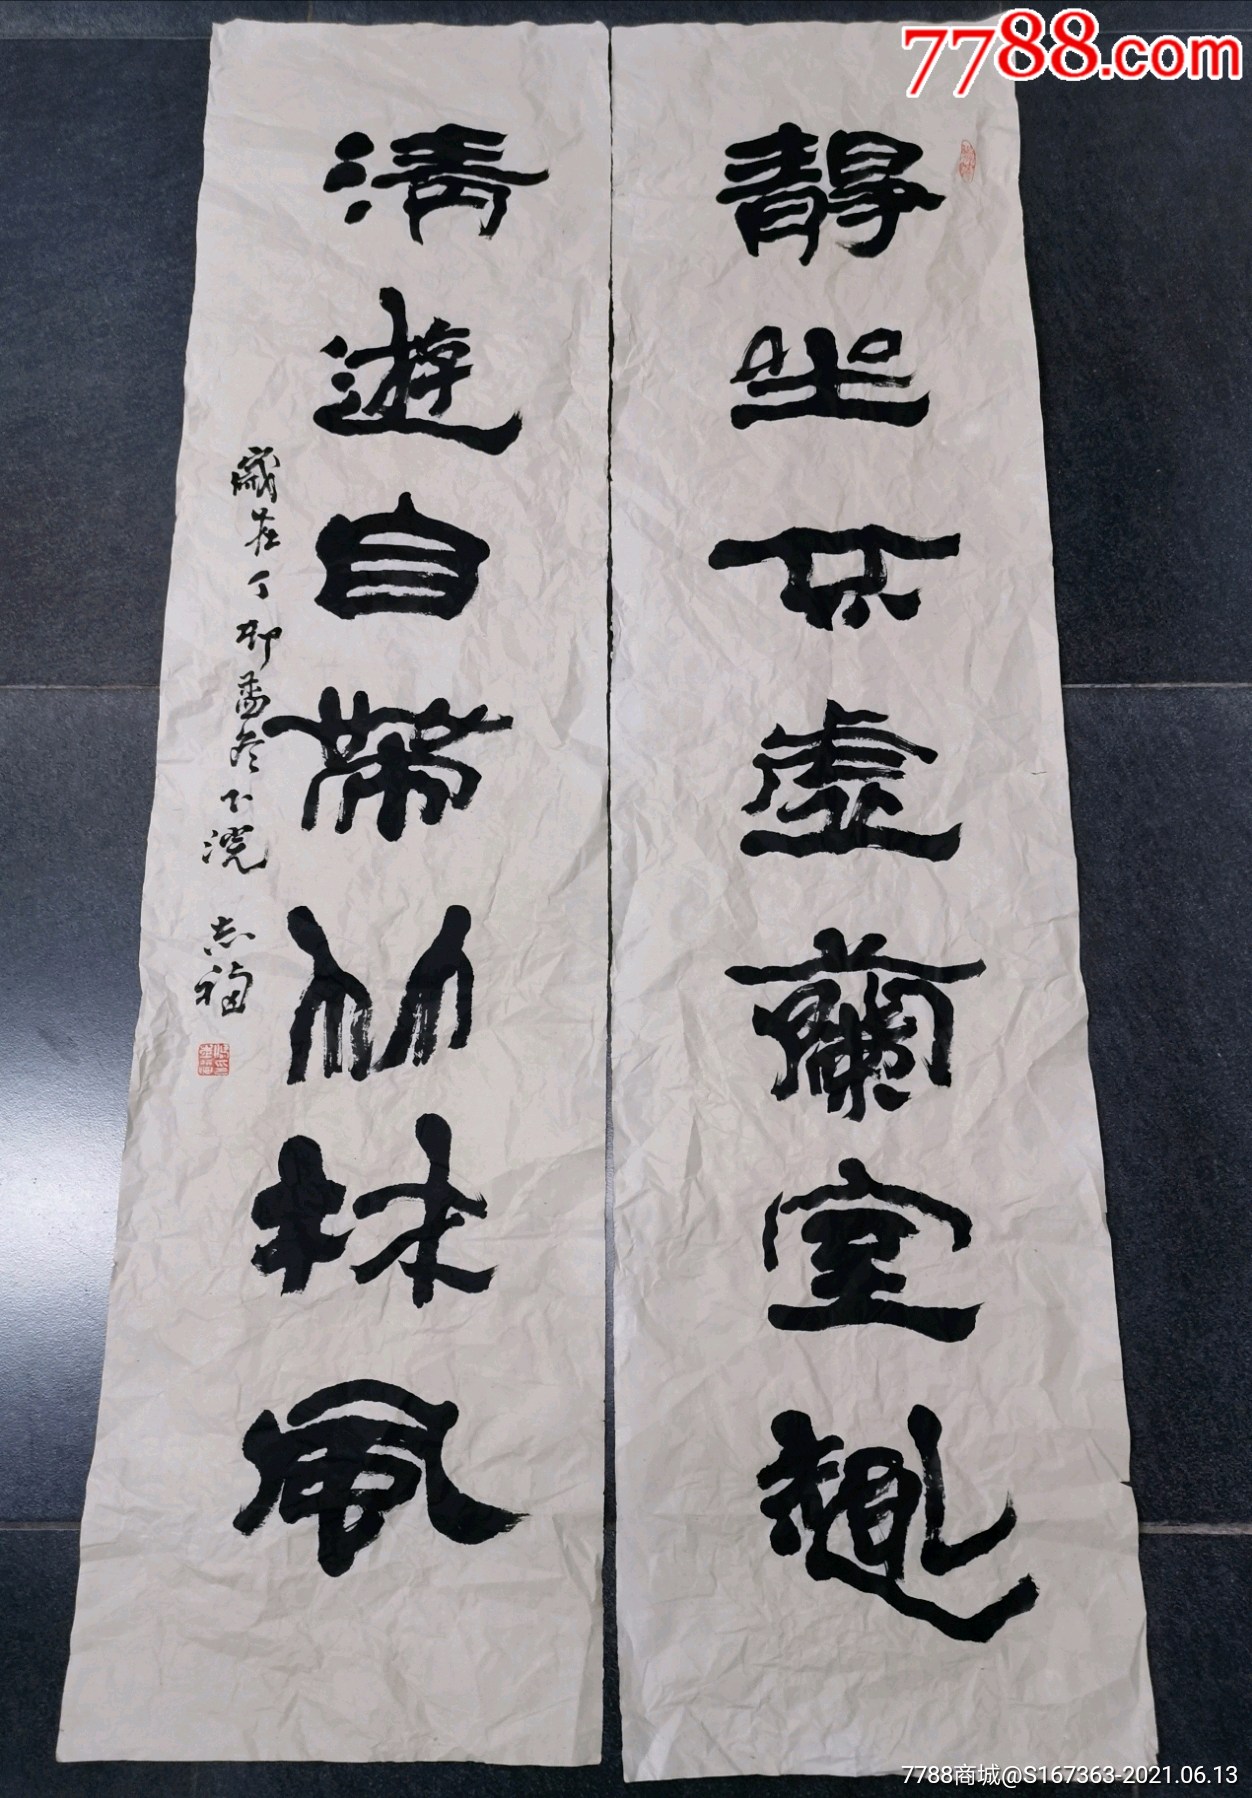 7788.com
靜坐不虛蘭室趣
清遊自帶竹林風
歲在丁卯
志福
7788商城@S167363-2021.06.13